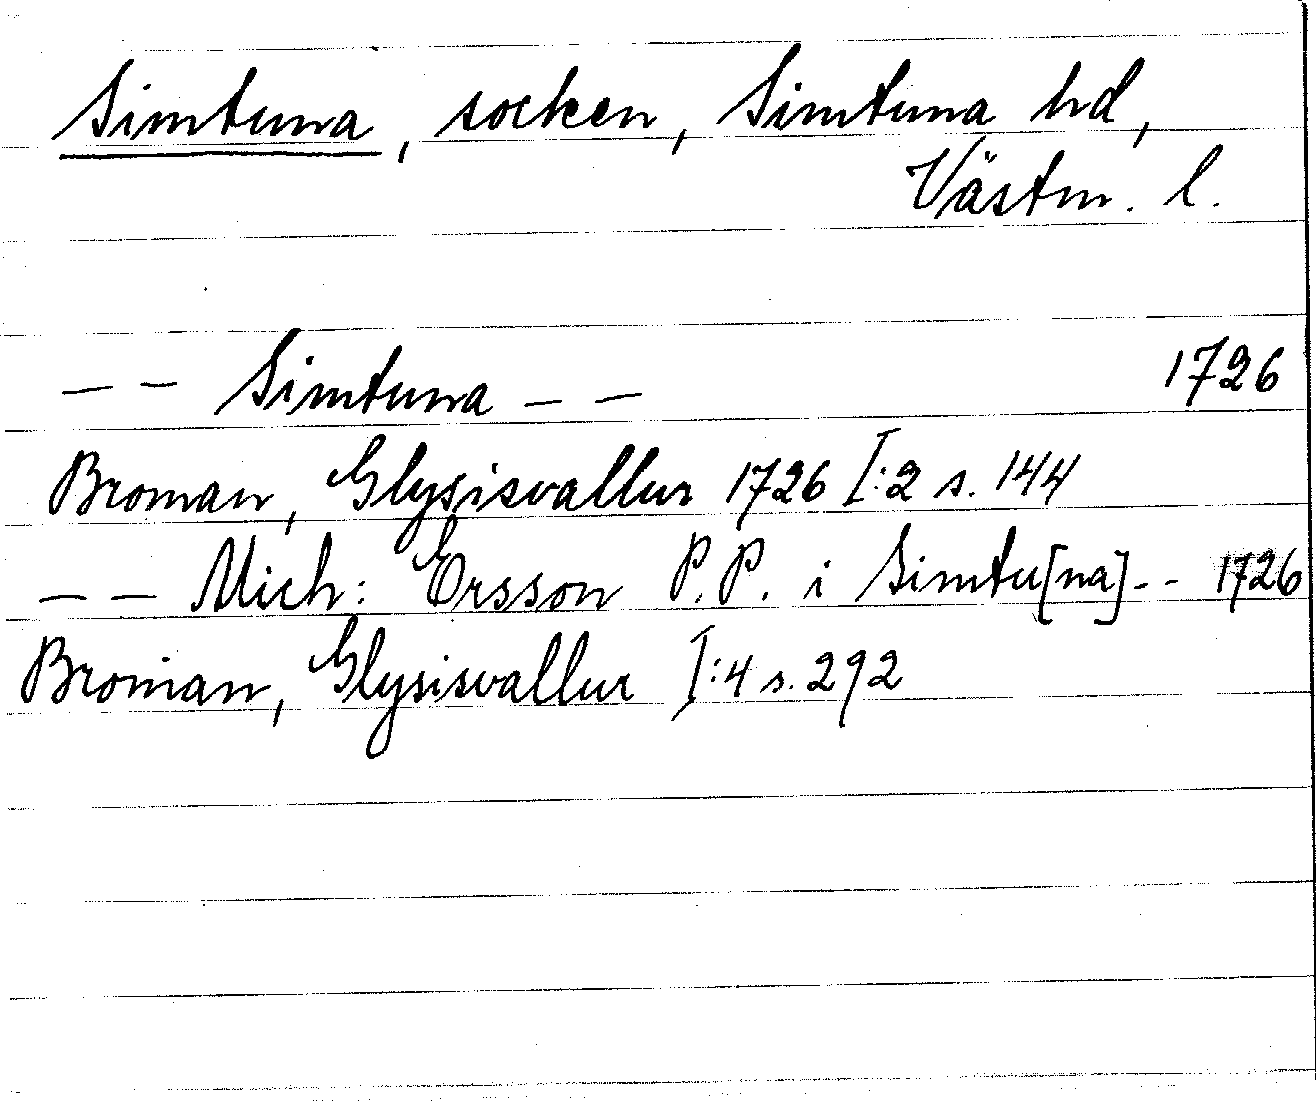 Simtuna, socken, Simtuna hd,
Västm. l.
— — Simtuna — — 1726
Broman, Glysisvallur 1726 I:2 s. 144
— — Mich: Ersson P.P. i Simtu[na] - - 1726
Broman, Glysisvallur I:4 s. 292